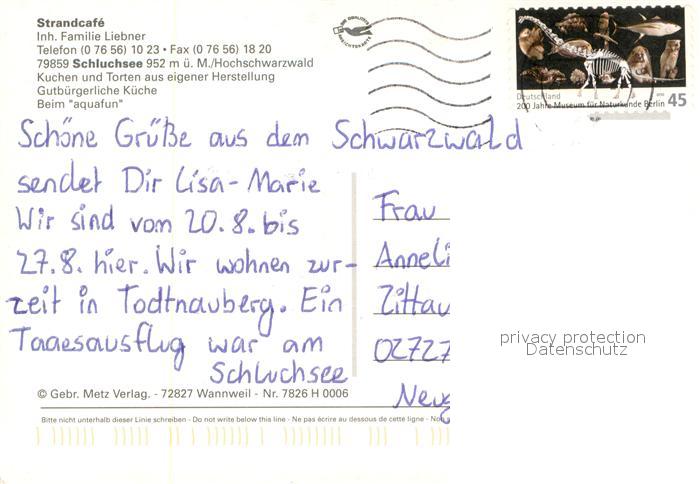 Strandcafé
Inh. Familie Liebner
Telefon (0 76 56) 10 23 • Fax (0 76 56) 18 20
79859 Schluchsee 952 m ü. M./Hochschwarzwald
Kuchen und Torten aus eigener Herstellung
Gutbürgerliche Küche
Beim "aquafun"
Deutschland
200 Jahre Museum für Naturkunde Berlin 45
Schöne Grüße aus dem Schwarzwald
sendet Dir Lisa-Marie
Wir sind vom 20.8. bis
27.8. hier. Wir wohnen zur-
zeit in Todtnauberg. Ein
Tagesausflug war am
Schluchsee
Frau
Anneli
Zittau
02727
Neug
privacy protection
Datenschutz
© Gebr. Metz Verlag. - 72827 Wannweil - Nr. 7826 H 0006
Bitte nicht unterhalb dieser Linie schreiben - Do not write below this line - Ne pas écrire au dessous de cette ligne - Non s